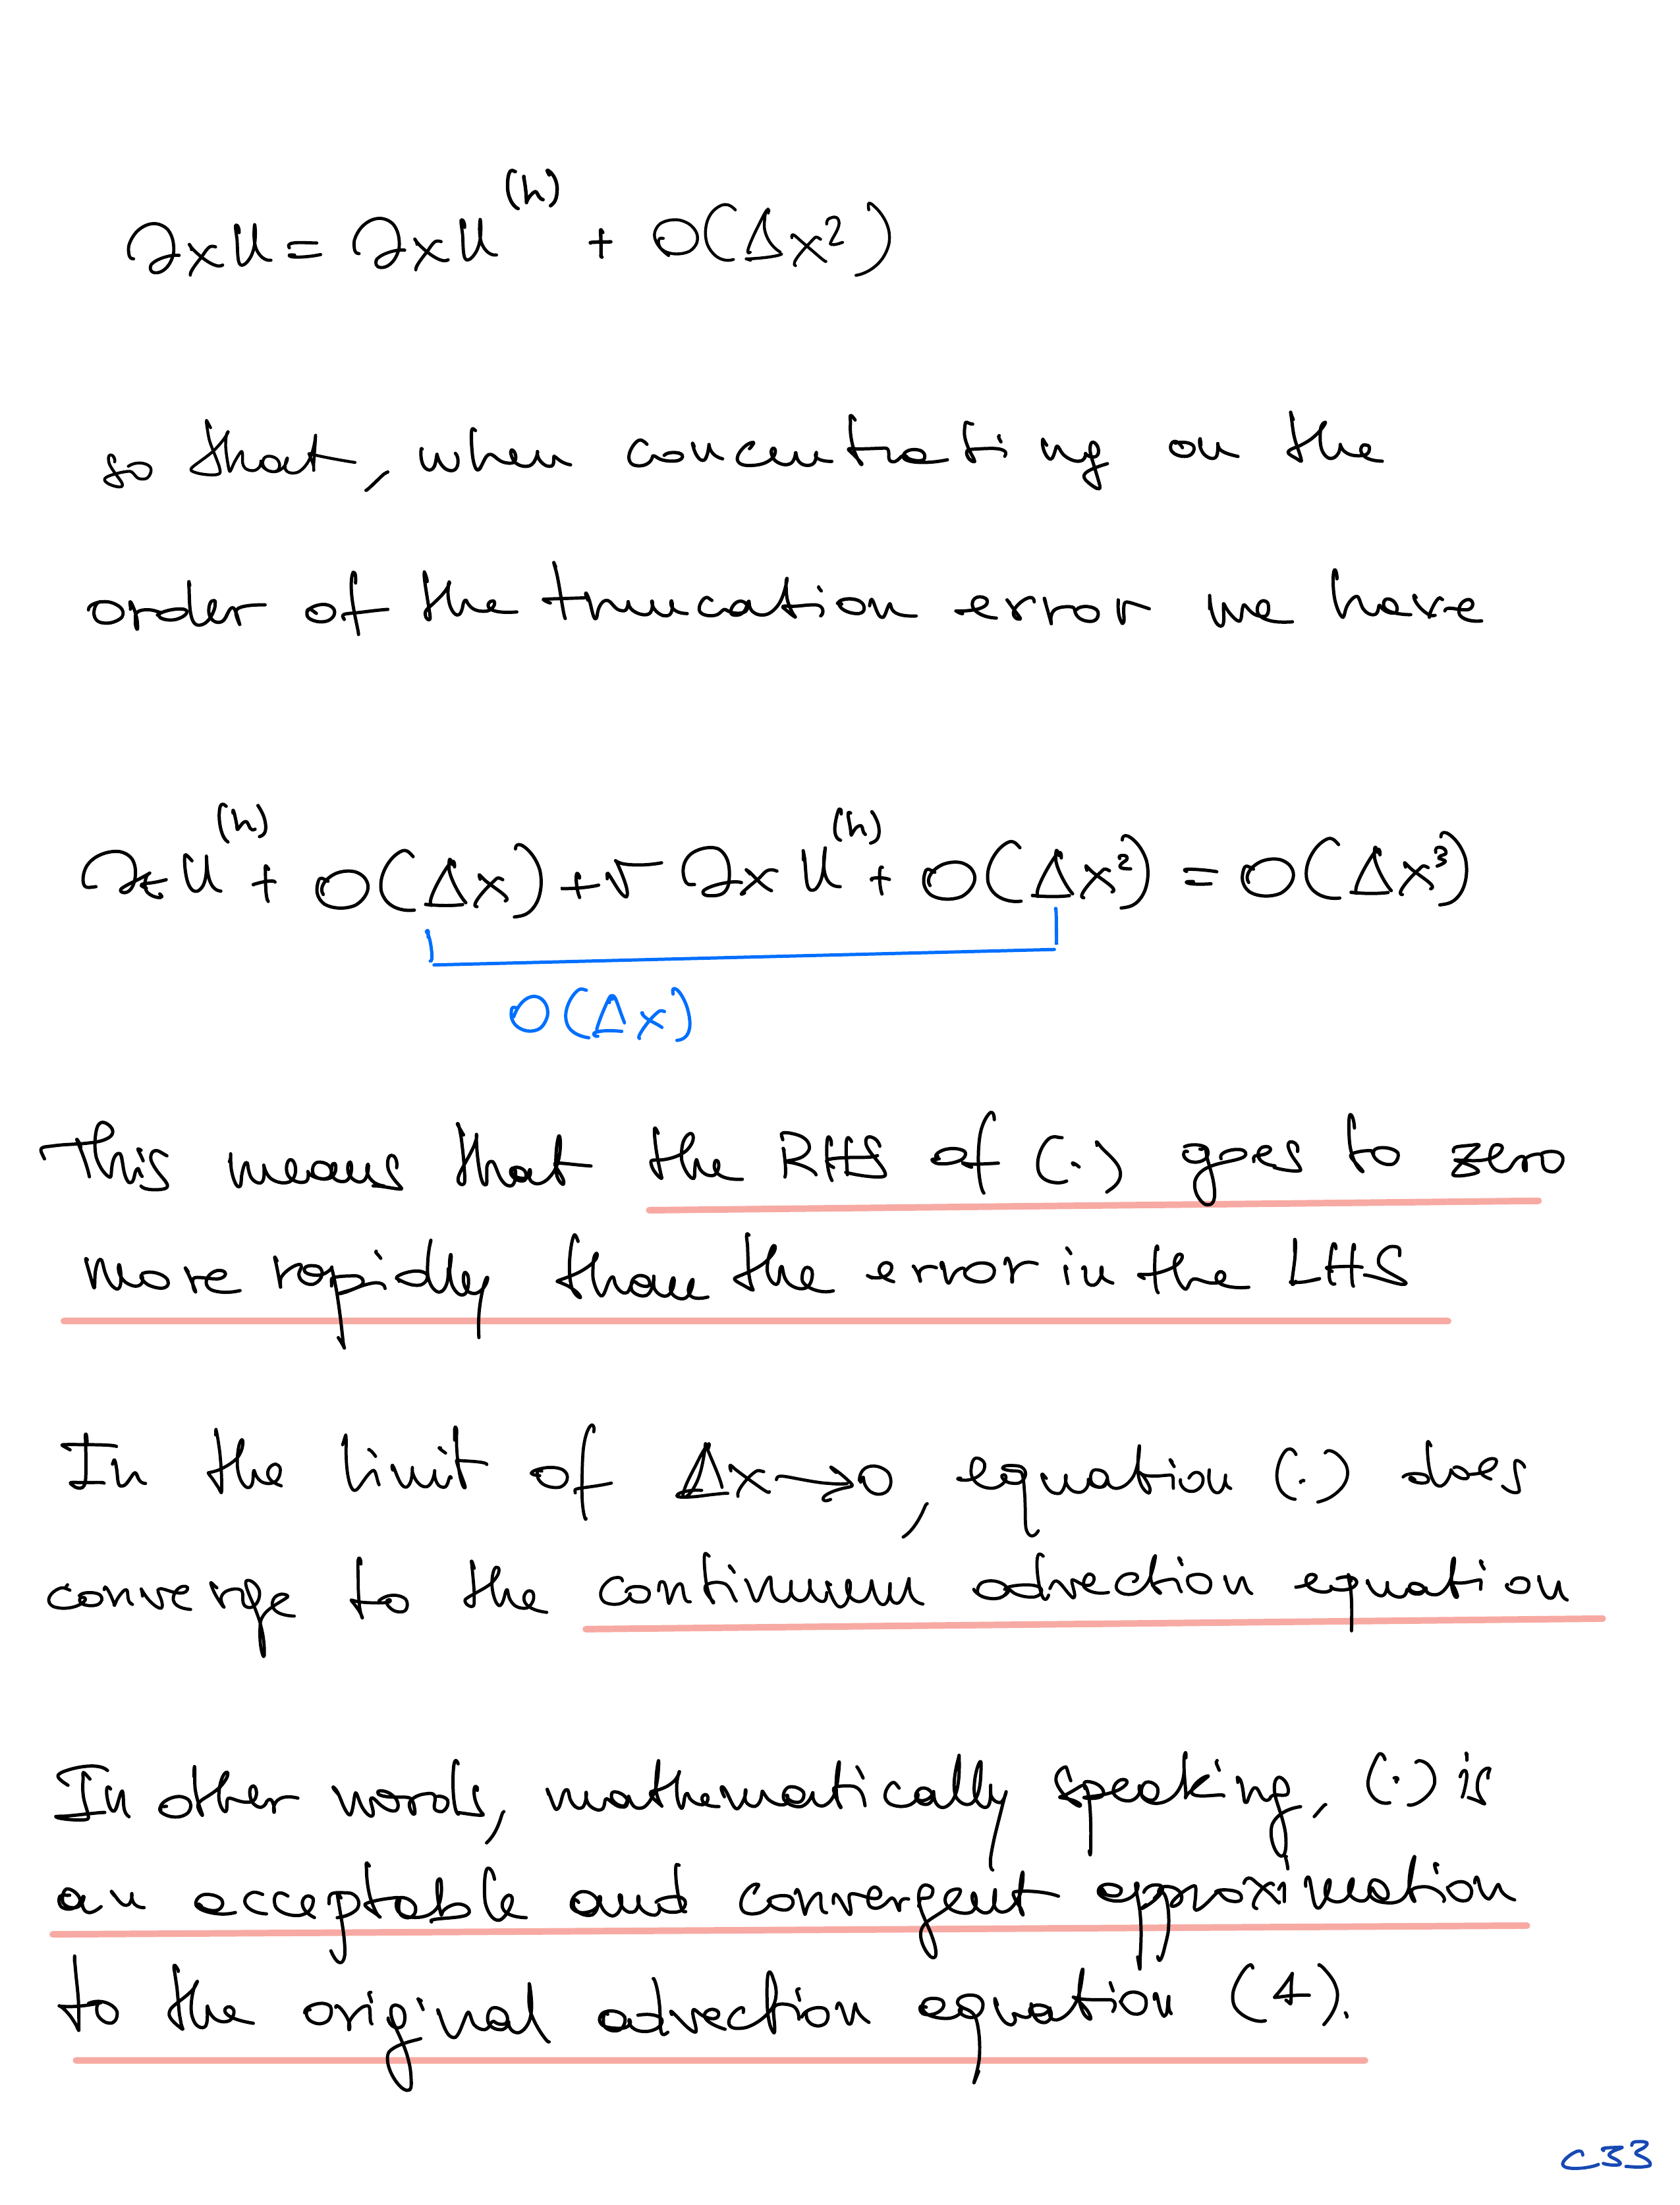 ∂x u = ∂x u^(h) + O(Δx²)
so that, when concentrating on the
order of the truncation error we have
∂t u^(h) + O(Δx) + v ∂x u^(h) + O(Δx²) = O(Δx³)
O(Δx)
This means that the RHS of (.) goes to zero
more rapidly than the error in the LHS
In the limit of Δx→0, equation (.) does
converge to the continuum advection equation
In other words, mathematically speaking, (.) is
an acceptable and convergent approximation
to the original advection equation (4).
C33